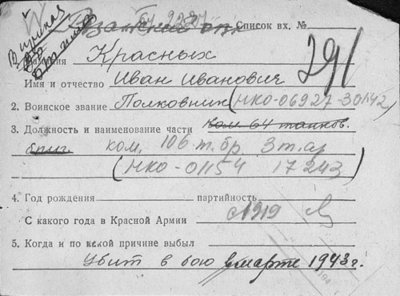 Список вх. №
Фамилия Красных 291
Имя и отчество Иван Иванович
2. Воинское звание Полковник (НКО-06927-30142)
3. Должность и наименование части Ком 64 танков.
бриг. ком. 106 т.бр 3 т.а
(НКО-01154 17243)
4. Год рождения партийность
С какого года в Красной Армии с1919
5. Когда и по какой причине выбыл
Убит в бою в марте 1943 г.